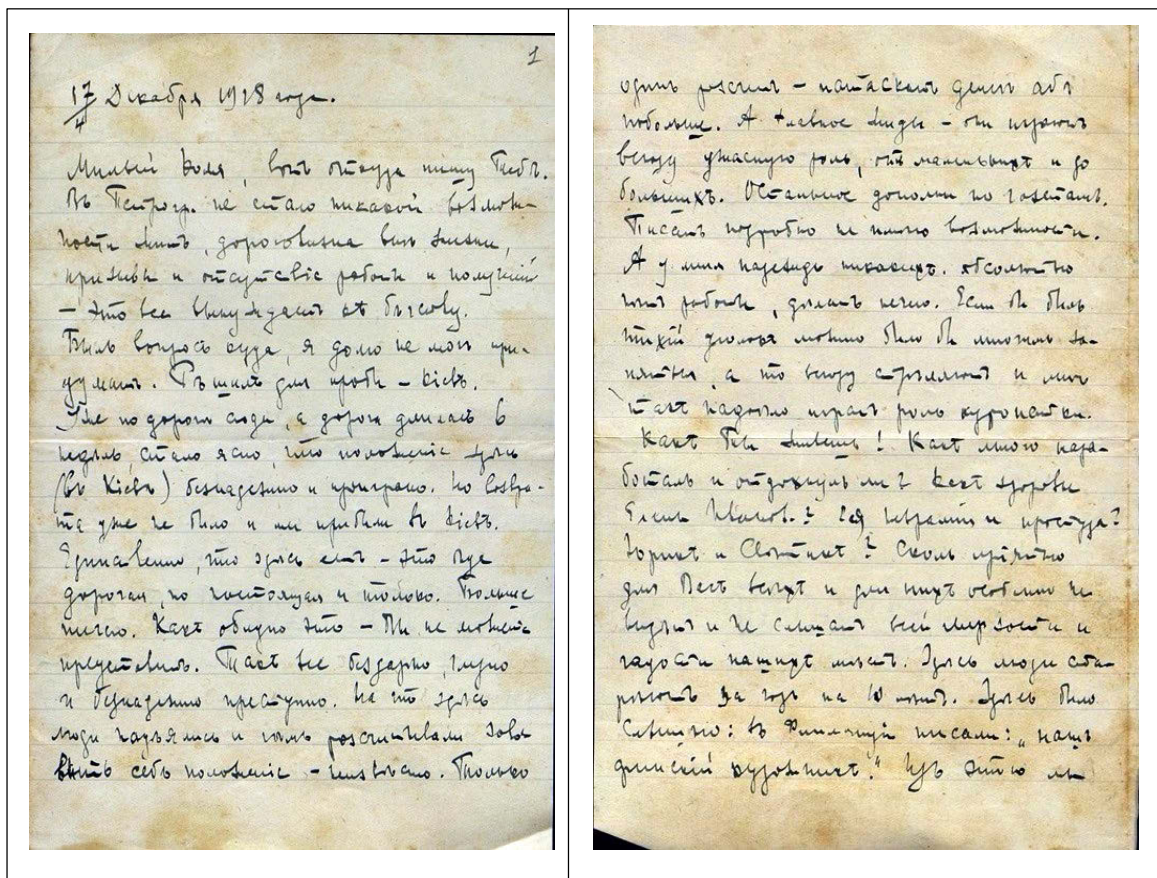 1
17/4 Декабря 1918 года.
Милый Коля, вотъ откуда пишу Тебѣ.
Въ Петрогр. не стало никакой возмож-
ности жить, дороговизна внѣ жизни,
призывы и отсутствіе работы и получений
– это все вынуждаетъ къ бѣгству.
Былъ вопросъ куда, я долго не могъ при-
думать. Рѣшилъ для пробы – Кіевъ.
Уже по дорогѣ сюда, а дорога длилась 6
недѣль, стало ясно, что положеніе здѣсь
(въ Кіевѣ) безнадежно и проиграно. Но возвра-
та уже не было и мы прибыли въ Кіевъ.
Единственно, что здѣсь есть – это еда
дорогая, но настоящая и только. Больше
ничего. Какъ обидно это – Ты не можешь
представить. Такъ все бездарно, глупо
и безнадежно преступно. На что здѣсь
люди надѣялись и чѣмъ разсчитывали
себѣ положеніе – неизвѣстно. Только
одинъ разсчетъ – натаскать денегъ абы
побольше. А главное жиды – они играютъ
всюду ужасную роль, отъ маленькихъ и до
большихъ. Остальное дополни по газетамъ.
Писать подробно не имѣю возможности.
А у меня надеждъ никакихъ. Абсолютно
нѣтъ работы, дѣлать нечего. Если бы былъ
тихій уголокъ можно было бы многимъ за-
няться, а то всюду стрѣляютъ и мнѣ
такъ надоѣло играть роль куропатки.
Какъ Ты живешь! Какъ много нара-
боталъ и отдохнулъ ли? Какъ здоровье
Елены Иванов.? Ея невралгія и простуда?
Юрикъ и Святикъ? Сколь пріятно
для Васъ всѣхъ и для нихъ особенно не
видѣть и не слышать всей мерзости и
гадости нашихъ мѣстъ. Здѣсь люди ста-
рѣютъ за годъ на 10 лѣтъ. Здѣсь было
слышно: въ Финляндіи писали: „нашъ
финскій художникъ". Изъ этого мы